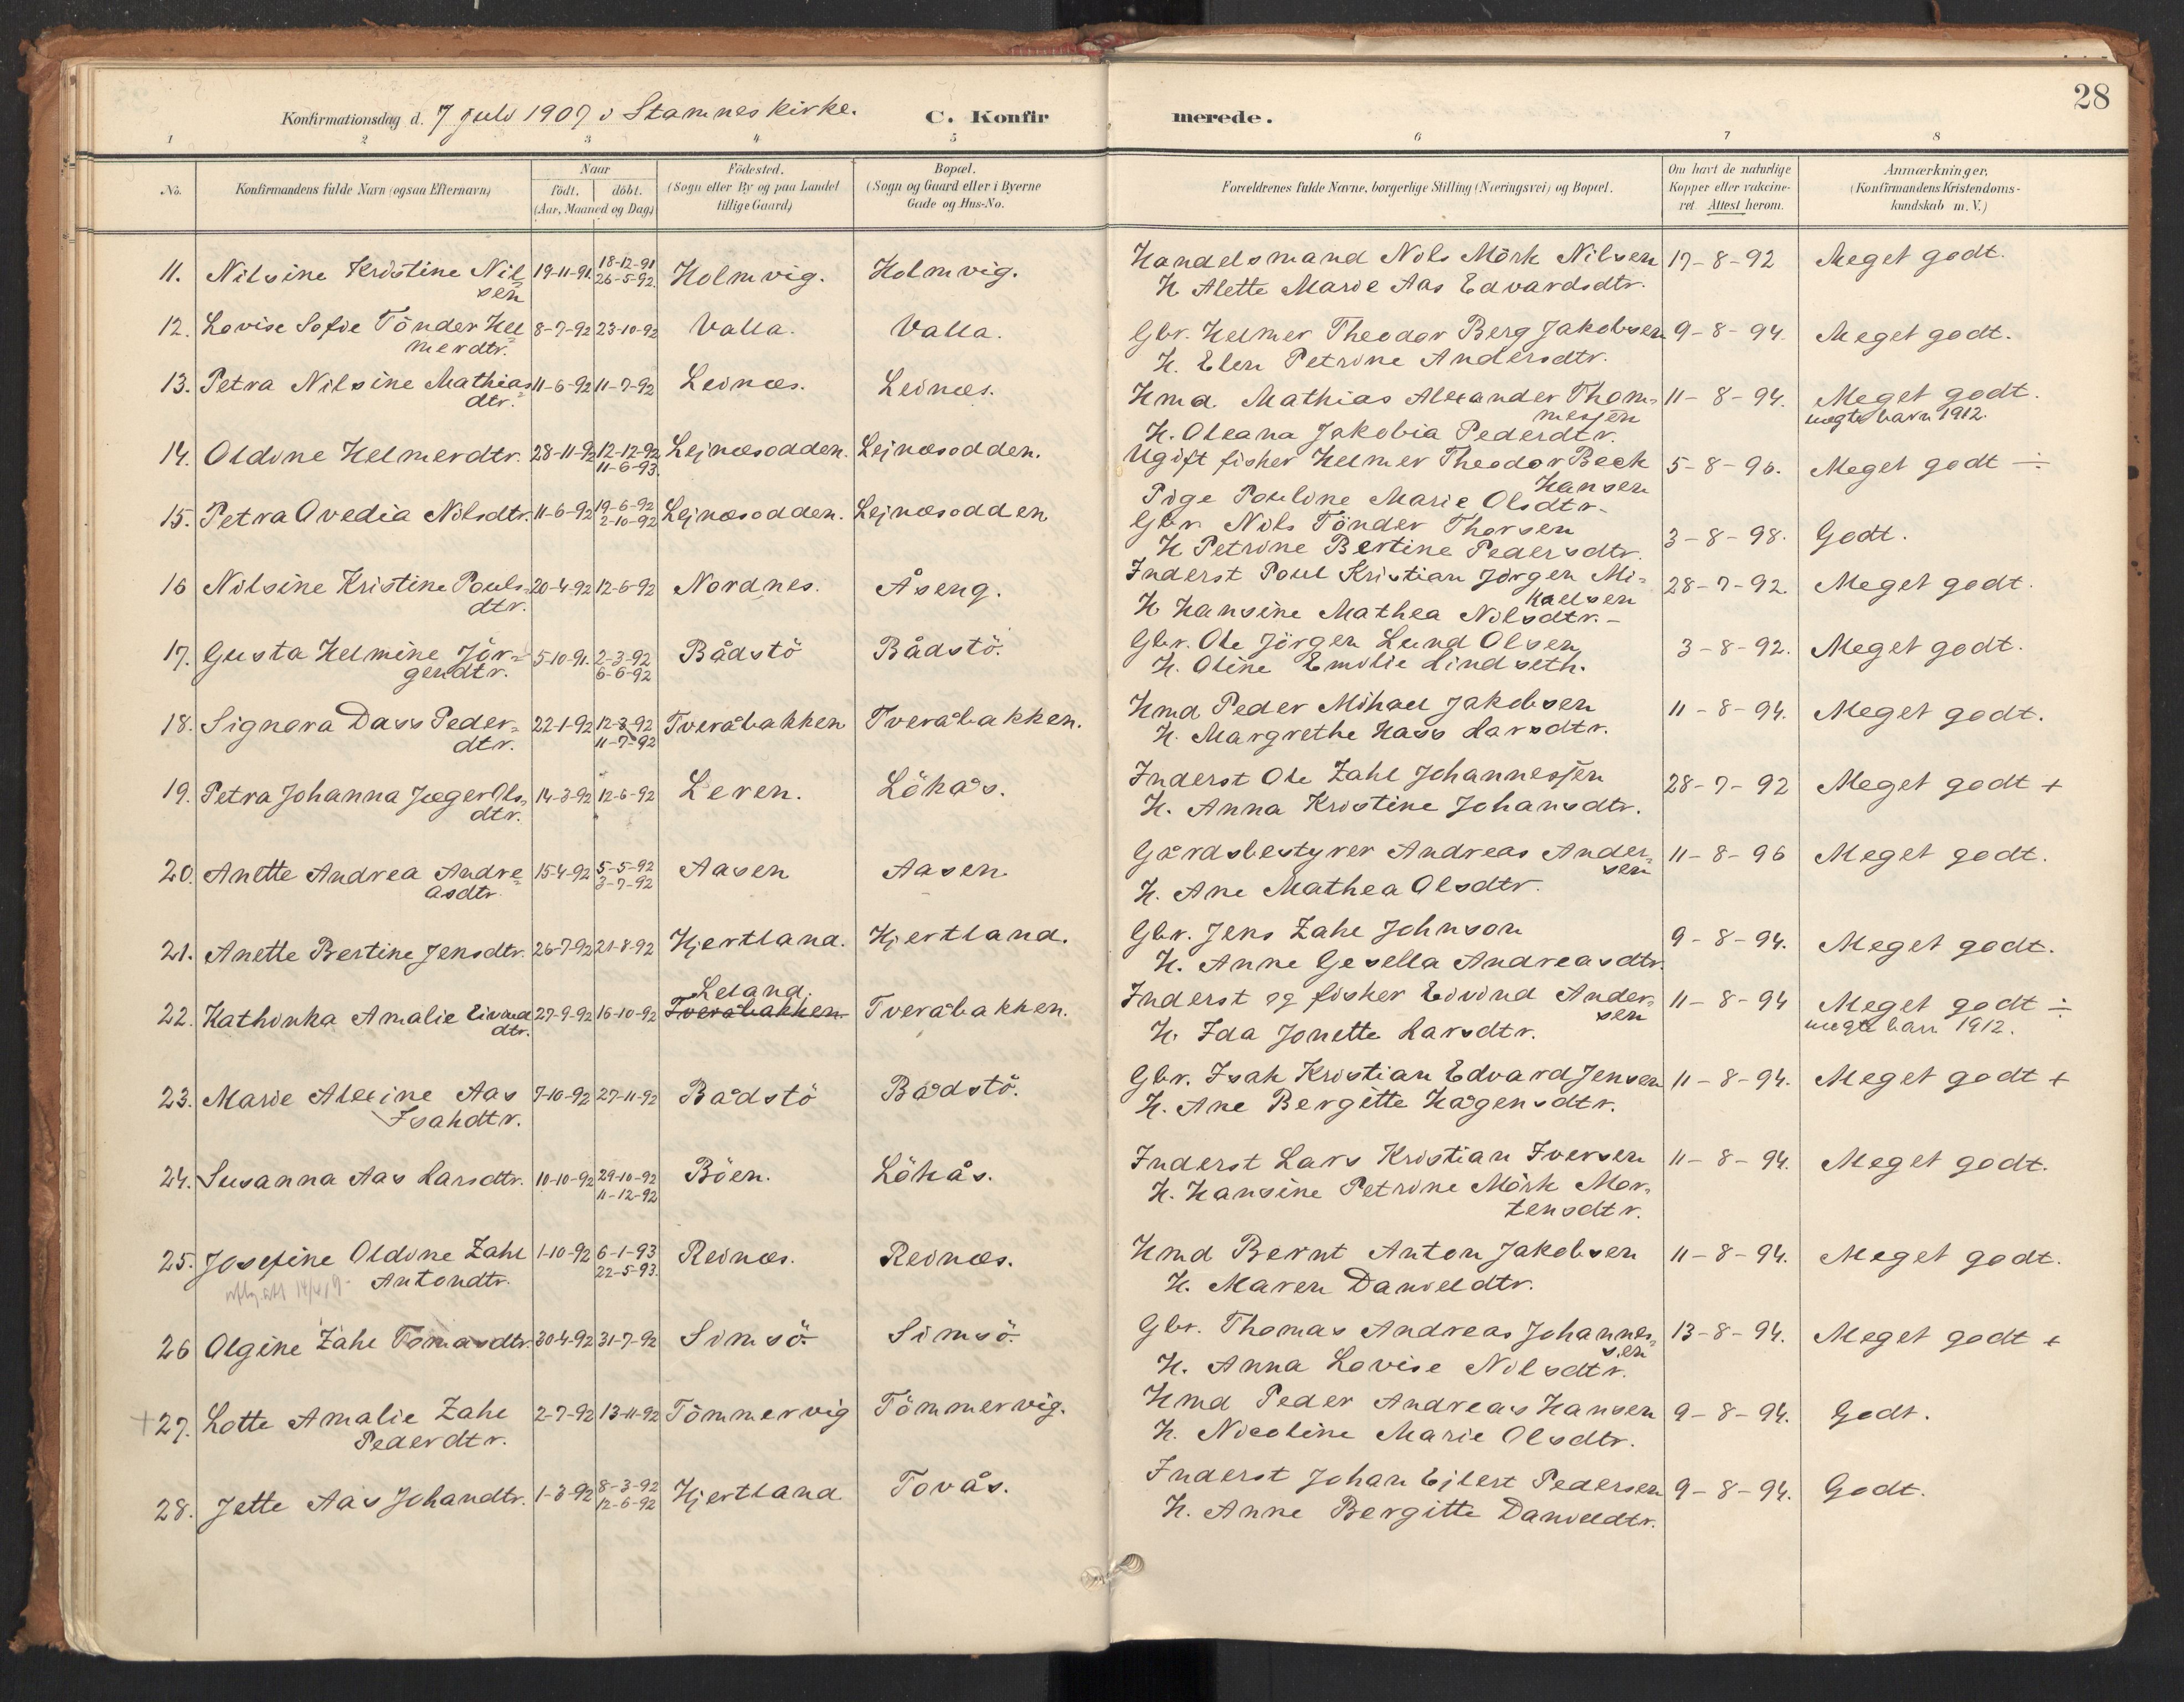 28
Konfirmationsdag d. 7 juli 1907 i Stamnes kirke. C. Konfirmerede.
1 2 3 4 5 6 7 8
No. Konfirmandens fulde Navn (ogsaa Efternavn)
Naar
födt. döbt.
(Aar, Maaned og Dag)
Födested.
(Sogn eller By og paa Landet
tillige Gaard)
Bopæl.
(Sogn og Gaard eller i Byerne
Gade og Hus-No.
Forældrenes fulde Navne, borgerlige Stilling (Næringsvei) og Bopæl.
Om havt de naturlige
Kopper eller vakcine-
ret. Attest herom.
Anmærkninger,
(Konfirmandens Kristendoms-
kundskab m. V.)
11. Nilsine Kristine Nil-
sen 19-11-91. 18-12-91
26-5-92. Holmvig. Holmvig. Handelsmand Nils Mörk Nilsen 17-8-92 Meget godt.
H Alette Marie Aas Edvardsdtr.
12. Lovise Sofie Tönder Hel-
merdtr. 8-7-92 23-10-92 Valla. Valla. Gbr. Helmer Theodor Berg Jakobsen 9-8-94. Meget godt.
H. Elen Petrine Andersdtr.
13. Petra Nilsine Mathias-
dtr. 11-6-92 11-7-92 Leinæs. Leinæs. Hmd. Mathias Alexander Thom-
messen 11-8-94. Meget godt.
uægte barn 1912.
H. Oleana Jakobia Pedersdtr.
14. Oldine Helmerdtr. 28-11-92 12-12-92
11-6-93. Lejnæsodden. Lejnæsodden. Ugift fisker Helmer Theodor Beck
Hansen 5-8-96. Meget godt ÷
Pige Pouline Marie Olsdtr.
15. Petra Ovedia Nilsdtr. 11-6-92 19-6-92
2-10-92 Lejnæsodden. Lejnæsodden Gbr. Nils Tönder Thorsen 3-8-98. Godt.
H Petrine Bertine Pedersdtr.
16 Nilsine Kristine Pouls-
dtr. 20-4-92 12-6-92 Nordnes. Åseng. Inderst Poul Kristian Jörgen Mi-
kaelsen 28-7-92. Meget godt.
H Hansine Mathea Nilsdtr.-
17. Gusta Helmine Jör-
gendtr. 5-10-91. 2-3-92
6-6-92 Bådstö Bådstö. Gbr. Ole Jörgen Lund Olsen 3-8-92. Meget godt.
H. Oline Emilie Lindseth.
18. Signora Dass Peder-
dtr. 22-1-92 12-3-92
11-7-92 Tveråbakken Tveråbakken. Hmd Peder Mihael Jakobsen 11-8-94. Meget godt.
H. Margrethe Hass Larsdtr.
19. Petra Johanna Jæger Ols-
dtr. 14-3-92 12-6-92 Leren. Lökås. Inderst Ole Zahl Johannessen 28-7-92 Meget godt +
H. Anna Kristine Johansdtr.
20. Anette Andrea Andre-
asdtr. 15-4-92 5-5-92
3-7-92 Aasen Aasen. Gårdsbestyrer Andreas Ander-
sen 11-8-96 Meget godt.
H. Ane Mathea Olsdtr.
21. Anette Bertine Jensdtr. 26-7-92 21-8-92 Hjertland. Hjertland. Gbr. Jens Zahl Johnson 9-8-94. Meget godt.
H. Anne Gesella Andreasdtr.
22. Kathinka Amalie Eivind
dtr. 27-9-92 16-10-92 Leland.
Tveråbakken Tveråbakken. Inderst og fisker Eivind Ander-
sen 11-8-94 Meget godt ÷
uægte barn 1912.
H. Ida Jonette Larsdtr.
23. Marie Alexine Aas
Isakdtr. 7-10-92 27-11-92 Bådstö Bådstö. Gbr. Isak Kristian Edvard Jensen 11-8-94. Meget godt +
H. Ane Bergitte Hågensdtr.
24. Susanna Aas Larsdtr. 10-10-92 29-10-92
11-12-92 Böen. Lökås. Inderst Lars Kristian Iversen 11-8-94. Meget godt.
H. Hansine Petrine Mörk Mor-
tensdtr.
25. Josefine Oldine Zahl
Antondtr. 1-10-92 6-1-93
22-5-93. Reinæs. Reinæs. Hmd Bernt Anton Jakobsen 11-8-94. Meget godt.
H. Maren Danieldtr.
26 Olgine Zahl Tomasdtr. 30-4-92 31-7-92 Simsö. Simsö. Gbr. Thomas Andreas Johannes-
sen 13-8-94. Meget godt +
H. Anna Lovise Nilsdtr.
+ 27. Lotte Amalie Zahl
Pederdtr. 2-7-92 13-11-92 Tömmervig Tömmervig. Hmd Peder Andreas Hansen 9-8-94. Godt.
H. Nicoline Marie Olsdtr.
28. Jette Aas Johandtr. 1-3-92 8-3-92
12-6-92 Hjertland Tovås. Inderst Johan Ejlert Pedersen 9-8-94. Godt.
H. Anne Bergitte Danieldtr.